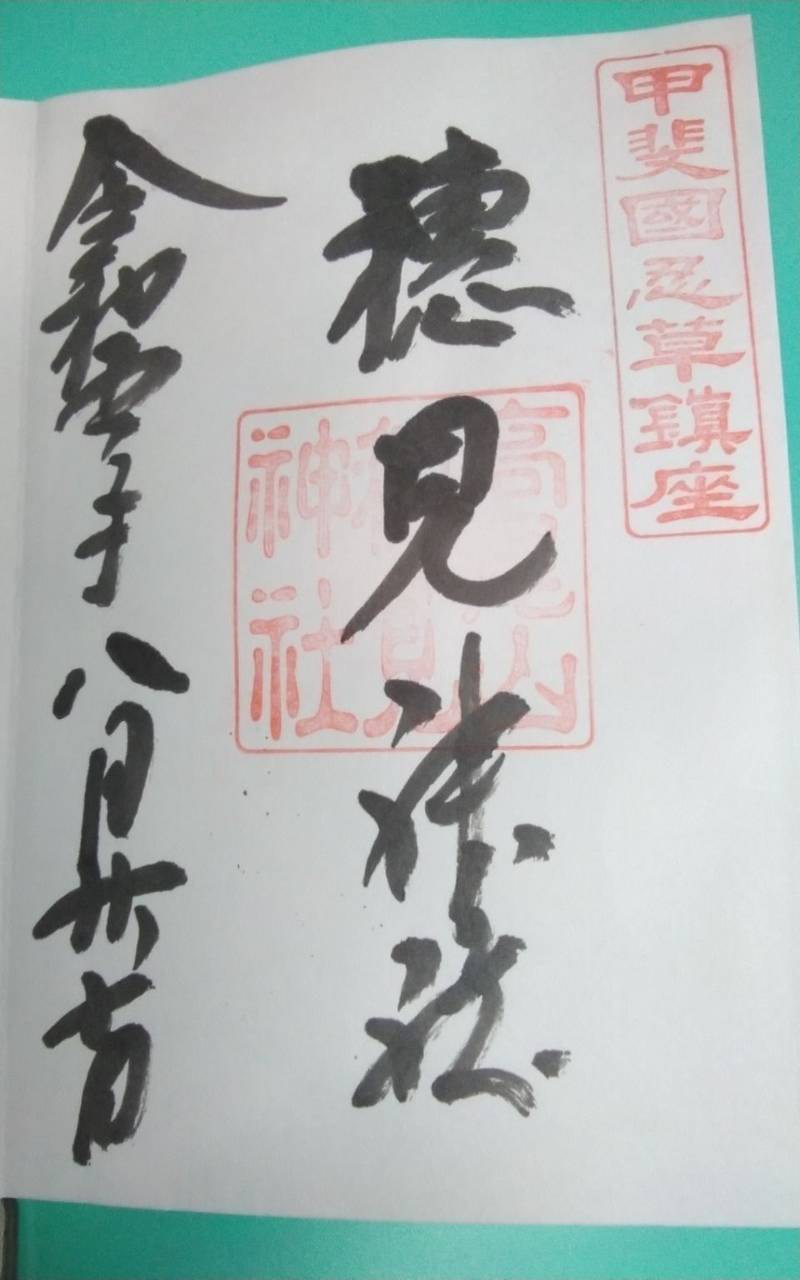 甲斐國忍草鎮座
穂見神社
神社
令和五年八月廿七日